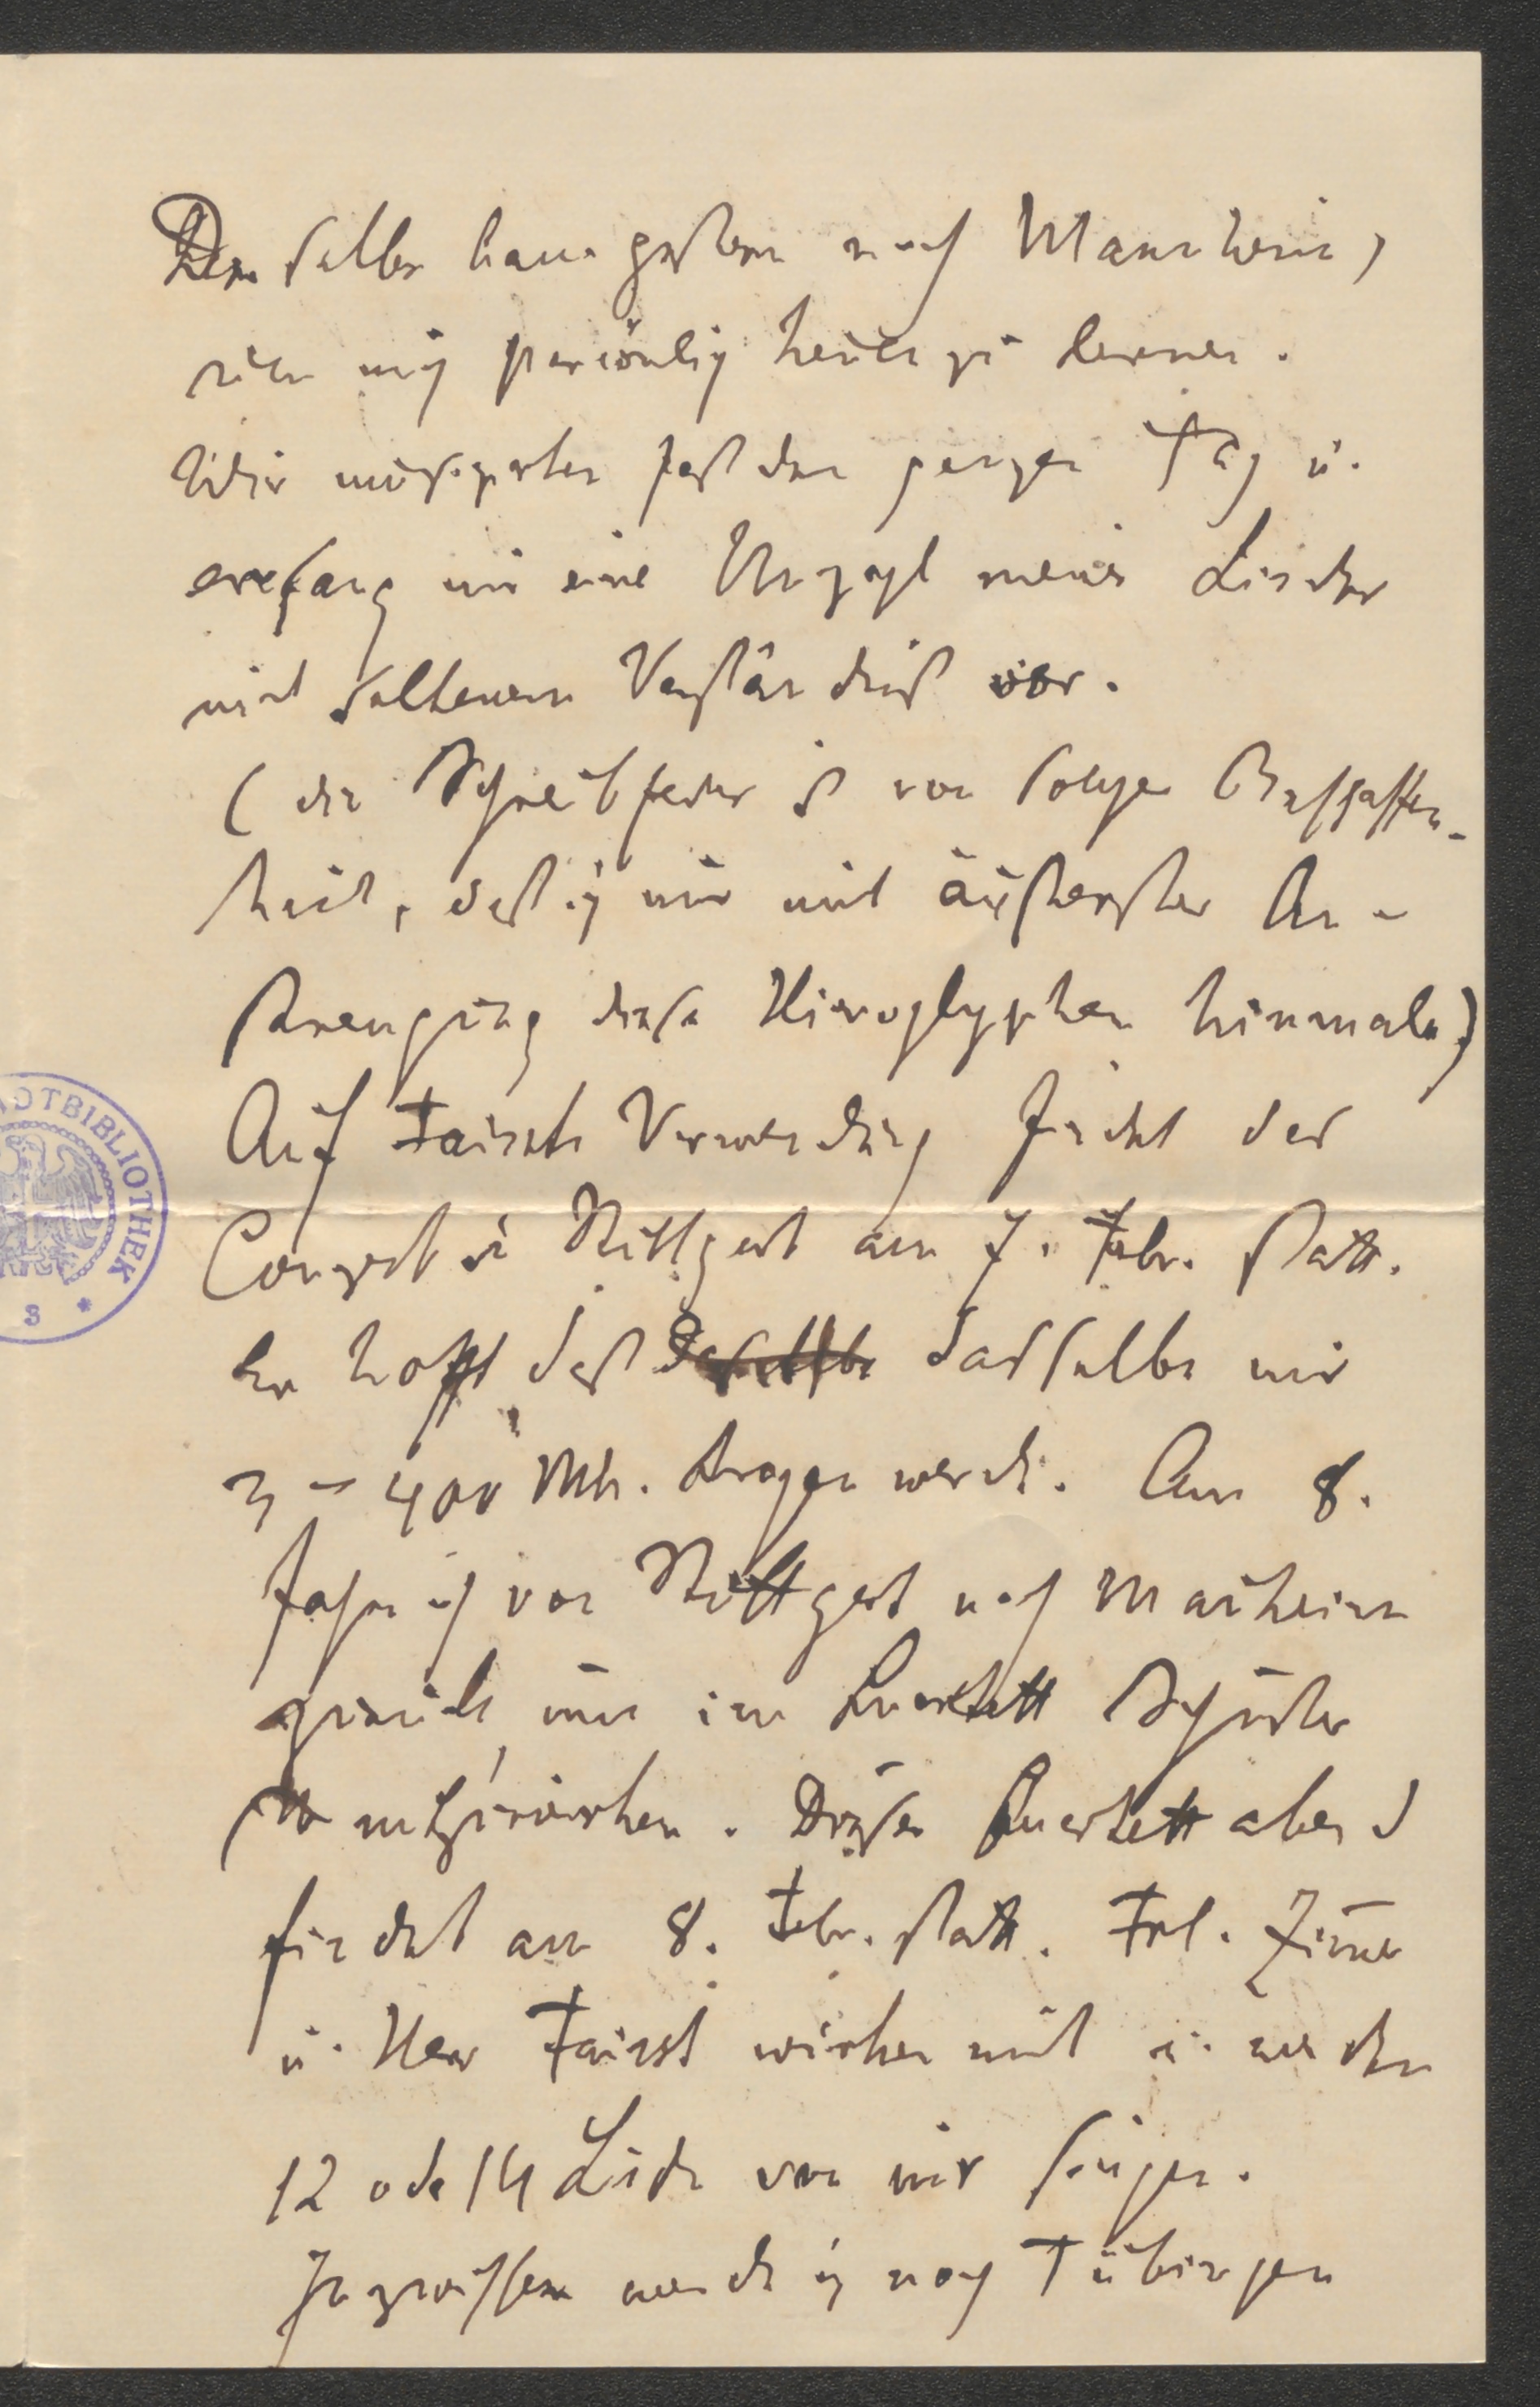 Derselbe kam gestern nach Mannheim,
um mich persönlich kennen zu lernen.
Wir musizirten fast den ganzen Tag u.
er sang mir eine Unzahl meiner Lieder
mit seltenem Verständniß vor.
(die Schreibfeder ist von solcher Beschaffen-
heit, daß ich nur mit äußerster An-
strengung diese Hieroglyphen hinmale)
Auf Faissts Verwendung findet das
Conzert in Stuttgart am 7. Febr. statt.
Er hofft, daß dasselbe mir
3–400 Mk. tragen werde. Am 8.
fahre ich von Stuttgart nach Manheim
zurück um im Quartett Schuster
mitzuwirken. Dieser Quartettabend
findet am 8. Febr. statt. Frl. Zerny
u. Herr Faisst wirken mit u. werden
12 oder 14 Lieder von mir singen.
Inzwischen werde ich nach Tübingen
STADTBIBLIOTHEK